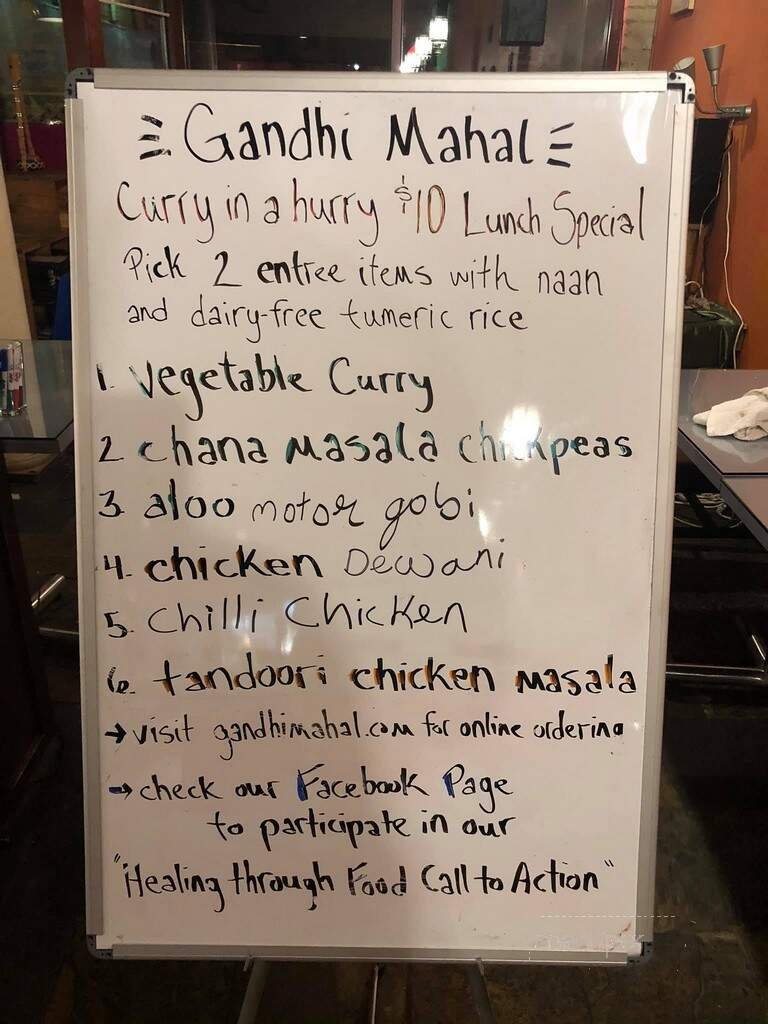 Gandhi Mahal
Curry in a hurry $10 Lunch Special
Pick 2 entree items with naan
and dairy-free tumeric rice
1. Vegetable Curry
2 chana masala chickpeas
3. aloo motor gobi
4. chicken Dewani
5. Chilli Chicken
6. tandoori chicken masala
→ visit gandhimahal.com for online ordering
→ check our Facebook Page
to participate in our
"Healing through Food Call to Action"